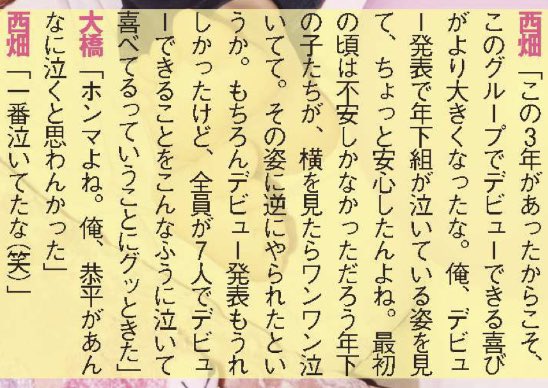 西畑「この3年があったからこそ、
このグループでデビューできる喜び
がより大きくなったな。俺、デビュ
ー発表で年下組が泣いている姿を見
て、ちょっと安心したんよね。最初
の頃は不安しかなかっただろう年下
の子たちが、横を見たらワンワン泣
いてて。その姿に逆にやられたとい
うか。もちろんデビュー発表もうれ
しかったけど、全員が7人でデビュ
ーできることをこんなふうに泣いて
喜べてるっていうことにグッときた」
大橋「ホンマよね。俺、恭平があん
なに泣くと思わんかった」
西畑「一番泣いてたな（笑）」